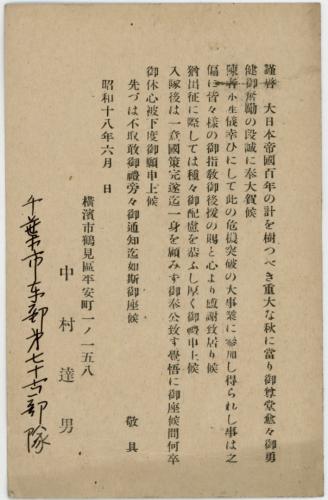 謹啓　大日本帝國百年の計を樹つべき重大な秋に當り御尊堂愈々御勇
健御奮勵の段誠に奉大賀候
陳者小生儀幸ひにして此の危機突破の大事業に參加し得られし事は之
偏に皆々樣の御指敎御後援の賜と心より感謝致居り候
猶出征に際しては種々御配慮を恭ふし厚く御禮申上候
入隊後は一意國策完遂迄一身を顧みず御奉公致す覺悟に御座候間何卒
御休心被下度御願申上候
先づは不取敢御禮旁々御通知迄如斯御座候　敬具
昭和十八年六月　日
橫濱市鶴見區平安町一ノ一五八
中村達男
千葉市東部第七十六部隊